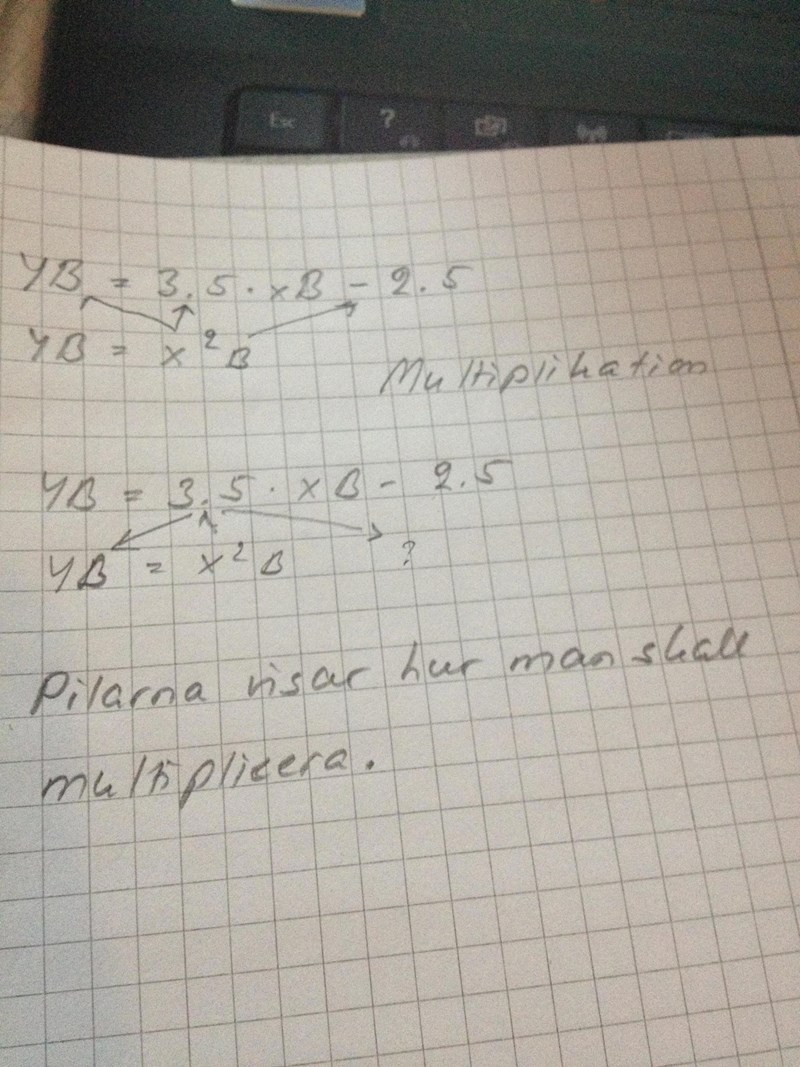 Esc ?
YB = 3.5 · xB - 2.5
YB = x²B
Multiplikation
YB = 3.5 · xB - 2.5
YB = x²B ?
Pilarna visar hur man skall
multiplicera.